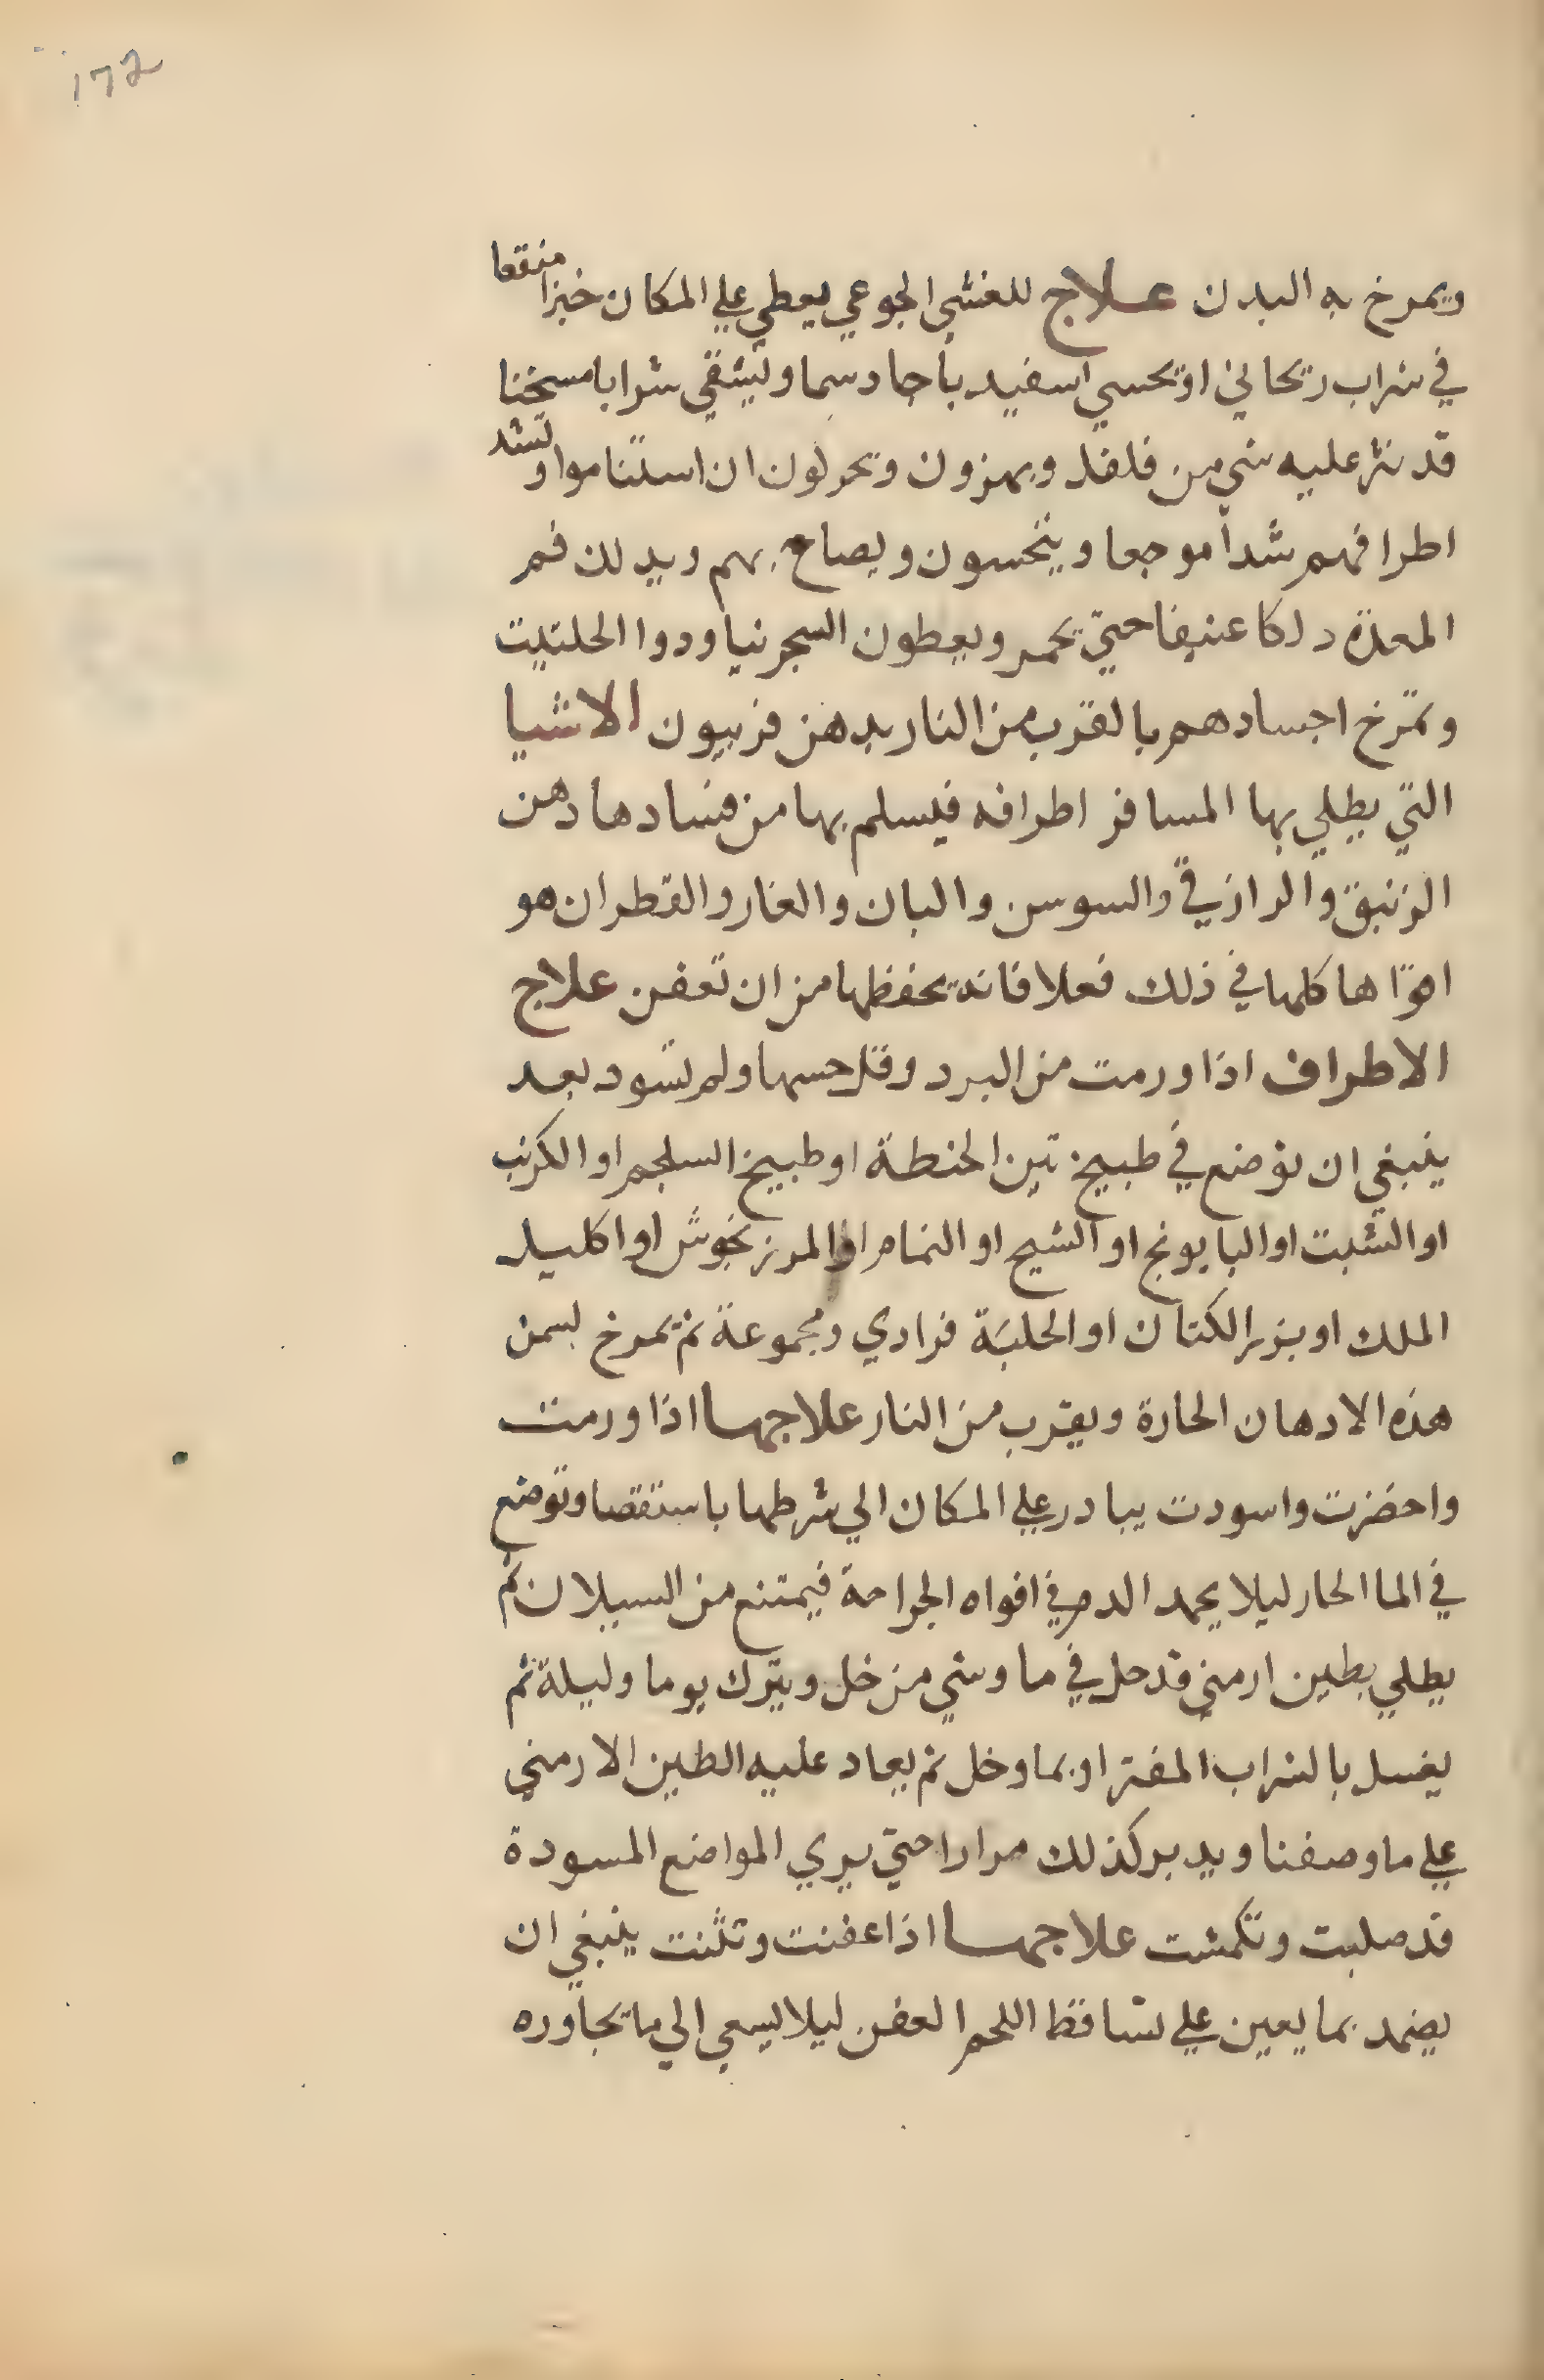 172
ويمرخ به البدن علاج للغشي الجوعي يعطي علي المكان خبزا منقعا
في شراب ريحاني او يحسي اسفيد باجا دسما ويسقي شرابا مسخنا
قد نثر عليه شي من فلفل ويهزون ويحركون ان استناموا وتشد
اطرافهم شدا موجعا وينخسون ويصاح بهم ويدلك فم
المعدة دلكا عنيفا حتي يحمر ويعطون السجرنيا ودوا الحلتيت
وتمرخ اجسادهم بالقرب من النار بدهن فربيون الاشيا
التي يطلي بها المسافر اطرافه فيسلم بها من فسادها دهن
الزنبق والرازقي والسوسن والبان والغار والقطران هو
اقواها كلها في ذلك فعلا فانه يحفظها من ان تعفن علاج
الاطراف اذا ورمت من البرد وقل حسها ولم تسود بعد
ينبغي ان توضع في طبيخ تبن الحنطة او طبيخ السلجم او الكرنب
او الشبت او البابونج او الشيح او النمام او المرزنجوش او اكليل
الملك او بزر الكتان او الحلبة فرادي ومجموعة ثم يمرخ بسمن
هذه الادهان الحارة ويقرب من النار علاجها اذا ورمت
واخضرت واسودت يبادر علي المكان الي شرطها باستقصا وتوضع
في الما الحار ليلا يجمد الدم في افواه الجراحة فيمتنع من السيلان ثم
يطلي بطين ارمني قد حل في ما وشي من خل ويترك يوما وليلة ثم
يغسل بالشراب المفتر او بما وخل ثم يعاد عليه الطين الارمني
علي ما وصفنا ويدبر كذلك مرارا حتي يري المواضع المسودة
قد صلبت وتكمشت علاجها اذا عفنت وتثنت ينبغي ان
يضمد بما يعين علي تساقط اللحم العفن ليلا يسعي الي ما يجاوره